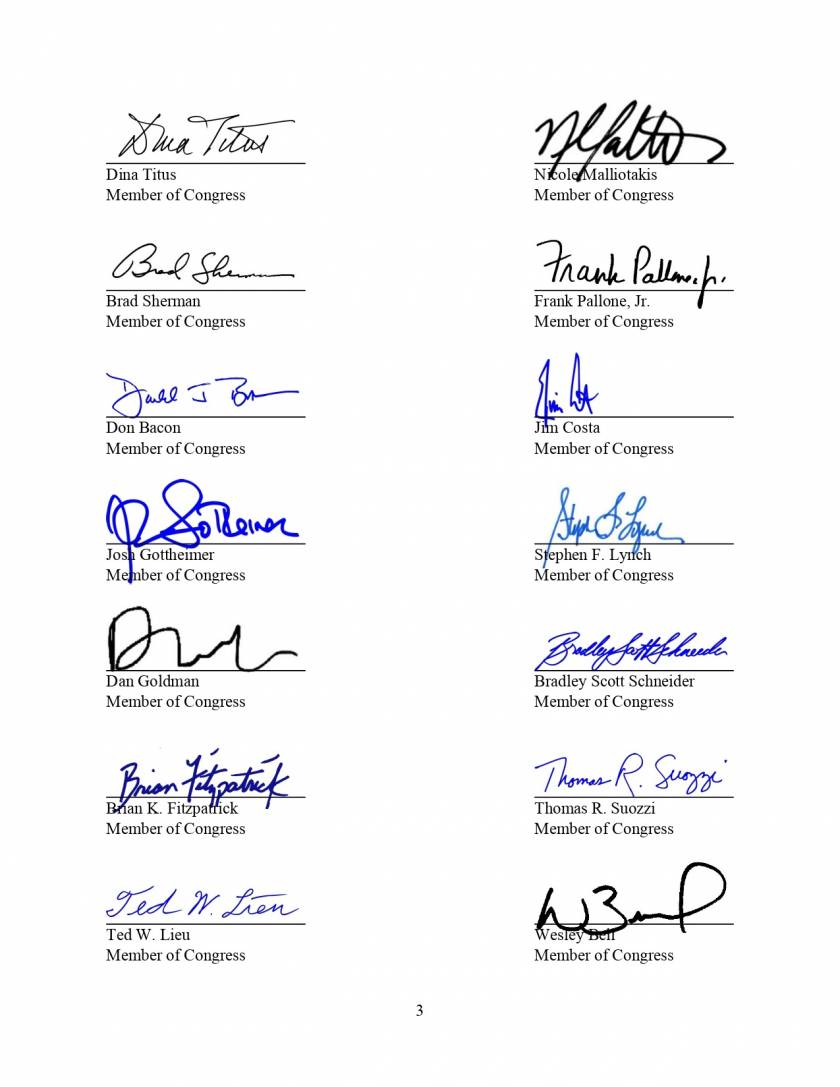 Dina Titus
Dina Titus
Member of Congress
Nicole Malliotakis
Member of Congress
Brad Sherman
Brad Sherman
Member of Congress
Frank Pallone, Jr.
Frank Pallone, Jr.
Member of Congress
Don Bacon
Member of Congress
Jim Costa
Member of Congress
Gottheimer
Josh Gottheimer
Member of Congress
Stephen F. Lynch
Stephen F. Lynch
Member of Congress
Dan Goldman
Member of Congress
Bradley Scott Schneider
Bradley Scott Schneider
Member of Congress
Brian Fitzpatrick
Brian K. Fitzpatrick
Member of Congress
Thomas R. Suozzi
Thomas R. Suozzi
Member of Congress
Ted W. Lieu
Ted W. Lieu
Member of Congress
Wesley Bell
Member of Congress
3